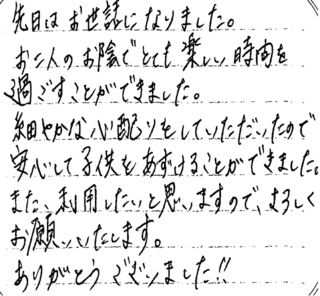 先日はお世話になりました。
お二人のお陰でとても楽しい時間を
過ごすことができました。
細やかな心配りをしていただいたので
安心して子供をあずけることができました。
また、利用したいと思いますので、よろしく
お願いいたします。
ありがとうございました!!